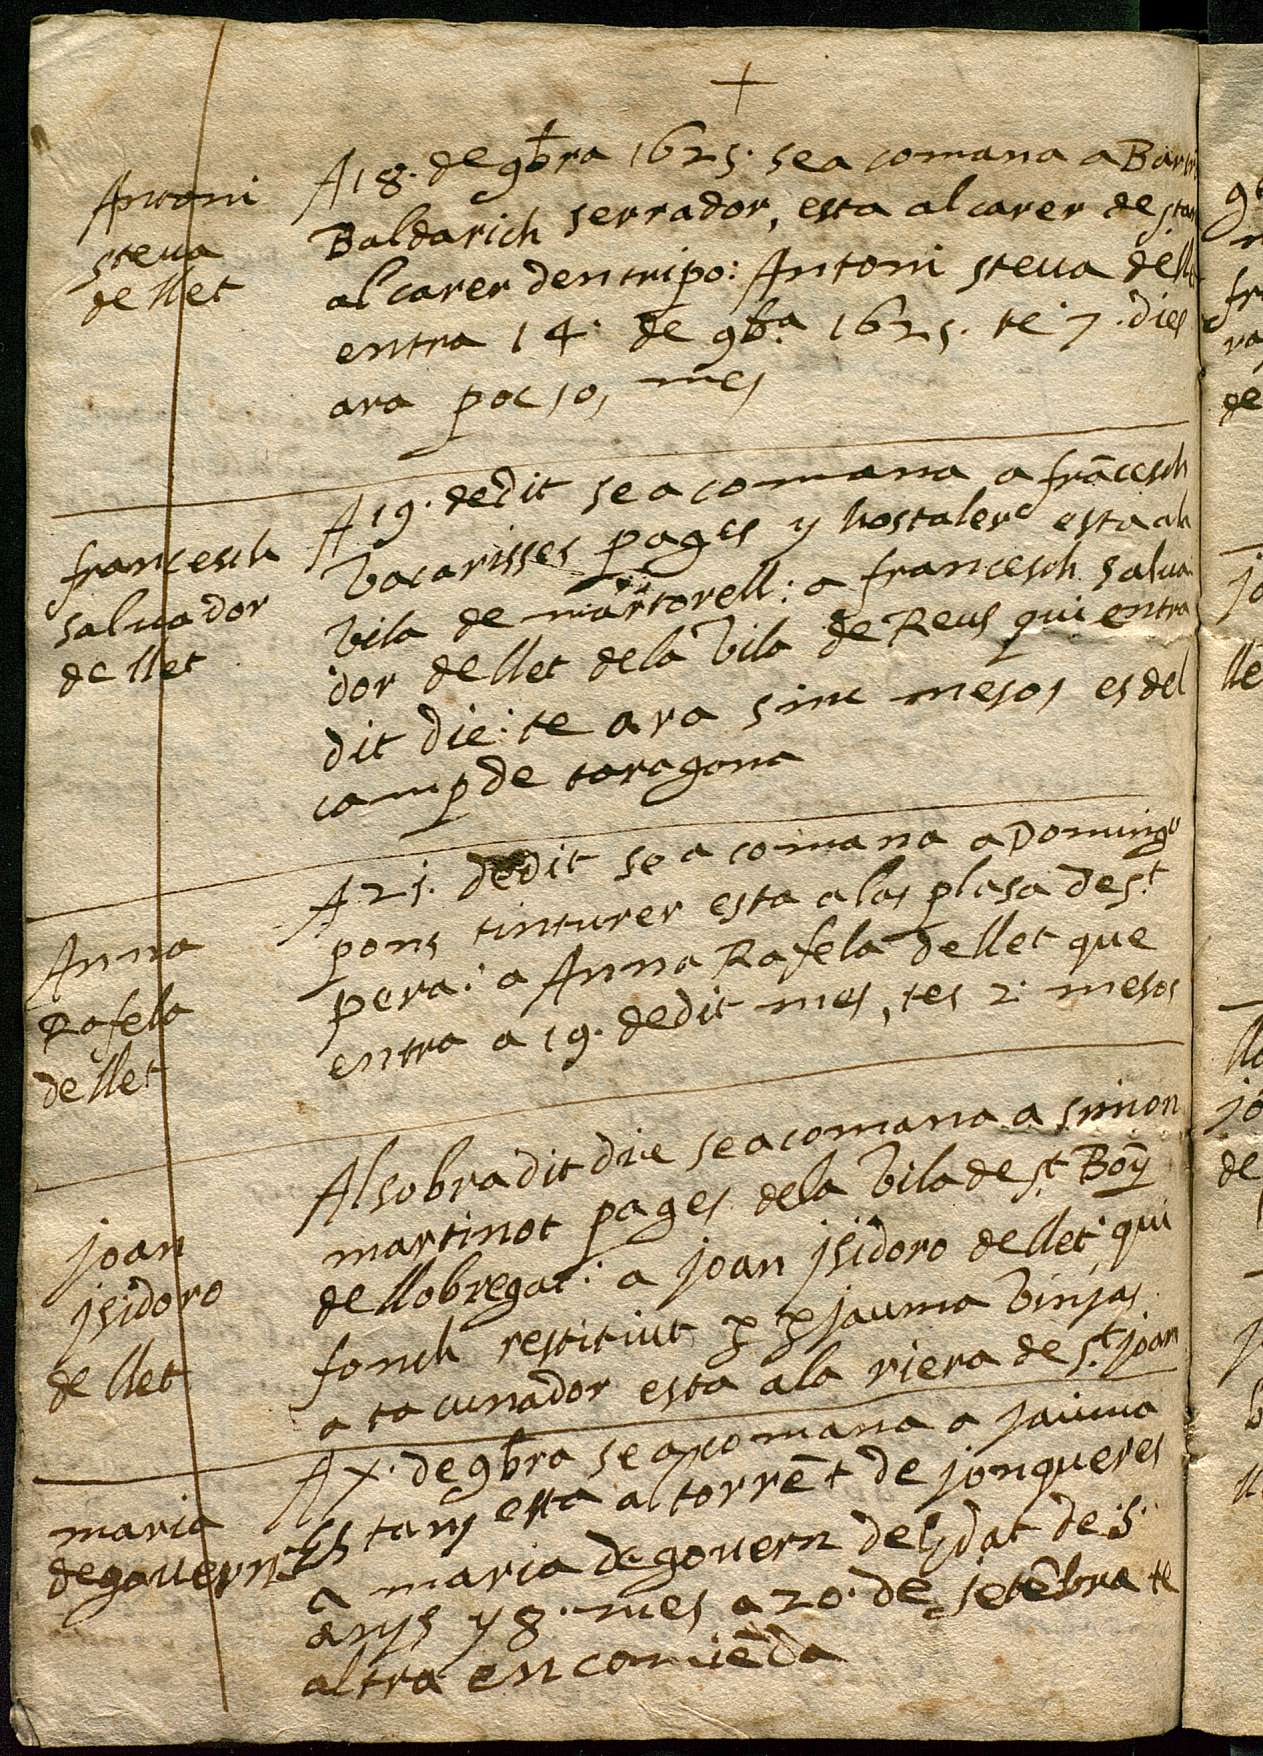 +
Antoni
steua
de llet
A 18. de 9bra 1625. se a comana a
Baldarich serrador, esta al carer de
al carer dentripo: Antoni steua de
entra 14. de 9b.ª 1625. te 7. dies
ara poc so, mes
francesch
saluador
de llet
A 19. de dit se a comana a frācesch
Vacarisses pages y hostaler esta ala
Vila de martorell: a francesch salua
dor de llet dela Vila de Reus qui entra
dit die: te ara sinc mesos es del
camp de taragona
Anna
Rafela
de llet
A 21. de dit se a comana a Domingo
pons tinturer esta a las plasa de st
pera: a Anna Rafela de llet que
entra a 19. de dit mes, tes 2. mesos
joan
jsidoro
de llet
Al sobradit die se a comana a simon
martinot pages dela Vila de st Boy
de llobregat: a joan jsidoro de llet qui
fonch restitiut p p jauma Vinjas
a ta cunador esta a la riera de st joan
maria
de gouern
A X. de 9bra se a comana a jauma
Estany esta al torrēt de jonqueres
a maria de gouern de edat de 5.
anys y 8. mes a 20. de setēbra te
altra encomiēda